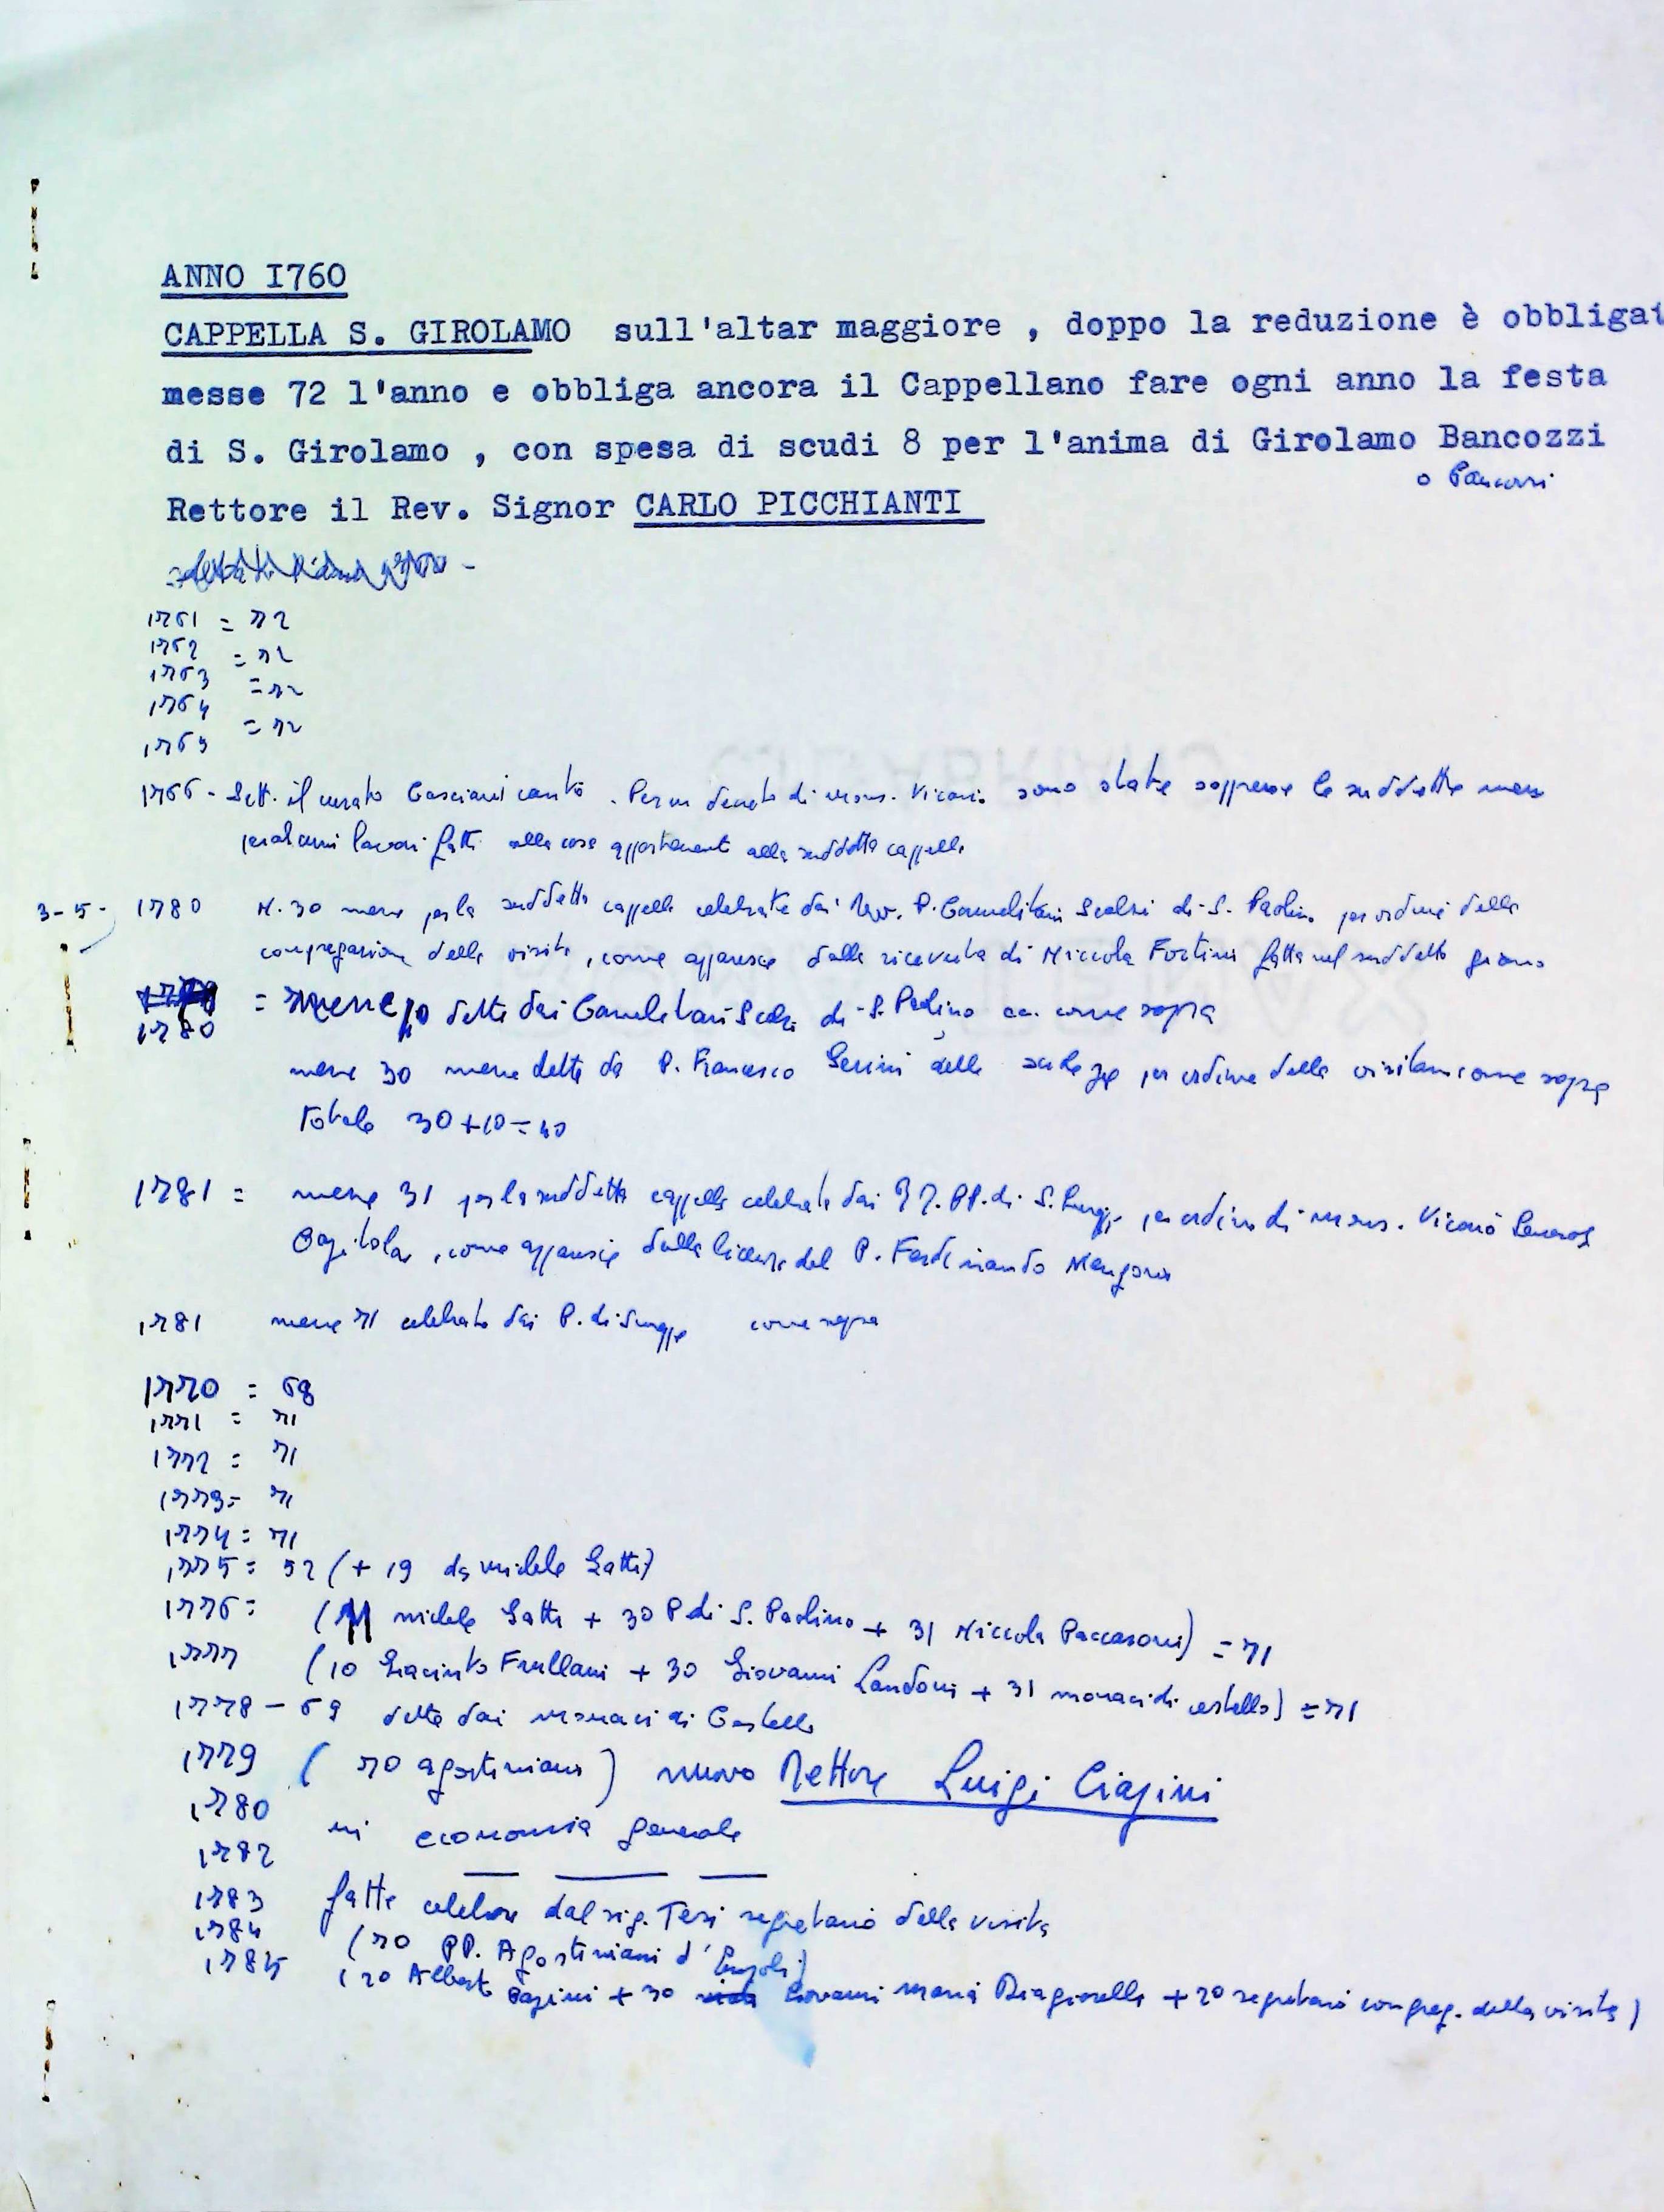 ANNO I760
CAPPELLA S. GIROLAMO sull'altar maggiore , doppo la reduzione è obbligat
messe 72 l'anno e obbliga ancora il Cappellano fare ogni anno la festa
di S. Girolamo , con spesa di scudi 8 per l'anima di Girolamo Bancozzi
o Pancozzi
Rettore il Rev. Signor CARLO PICCHIANTI
1761 = 72
1762 = 72
1763 = 72
1764 = 72
1765
1766 - Sett. il curato Casciani cantò . Per un decreto di mons. Vicario sono state soppresse le suddette messe
per alcuni lavori fatti alla casa appartenente alla suddetta cappella
3-5- 1780 N. 30 messe per la suddetta cappella celebrate dai Rev. P. Carmelitani Scalzi di S. Paolino per ordine della
congregazione della visita , come apparisce dalla ricevuta di Niccola Fortini fatta nel suddetto giorno
1780 = messe 10 dette dai Carmelitani Scalzi di S. Paolino come sopra
messe 30 messe dette da P. Francesco Serini delle per ordine della visita come sopra
Totale 30+10=40
1781 = messe 31 per la suddetta cappella celebrate dai PP. di S. per ordine di mons. Vicario
Capitolare , come apparisce dalla del P. Ferdinando
1781 messe 71 celebrate dai P. di come sopra
1770 = 68
1771 = 71
1772 = 71
1773 = 71
1774 = 71
1775 = 52 (+ 19 da michele Gatti)
1776 = (11 michele Gatti + 30 P di S. Paolino + 31 Niccola Paccasoni) = 71
1777 (10 Giacinto Frullani + 30 Giovanni Landoni + 31 monaci di cestello) = 71
1778 - 69 dette dai monaci di Cestello
1779 ( 70 agostiniani ) nuovo Rettore Luigi Ciapini
1780
in economia generale
1782
1783 fatte celebrare dal sig. Tesi segretario della visita
1784 (70 PP. Agostiniani d'Empoli)
1785 (20 Alberto Papini + 30 Giovanni Maria Biagiorelli + 20 segretario congreg. della visita)